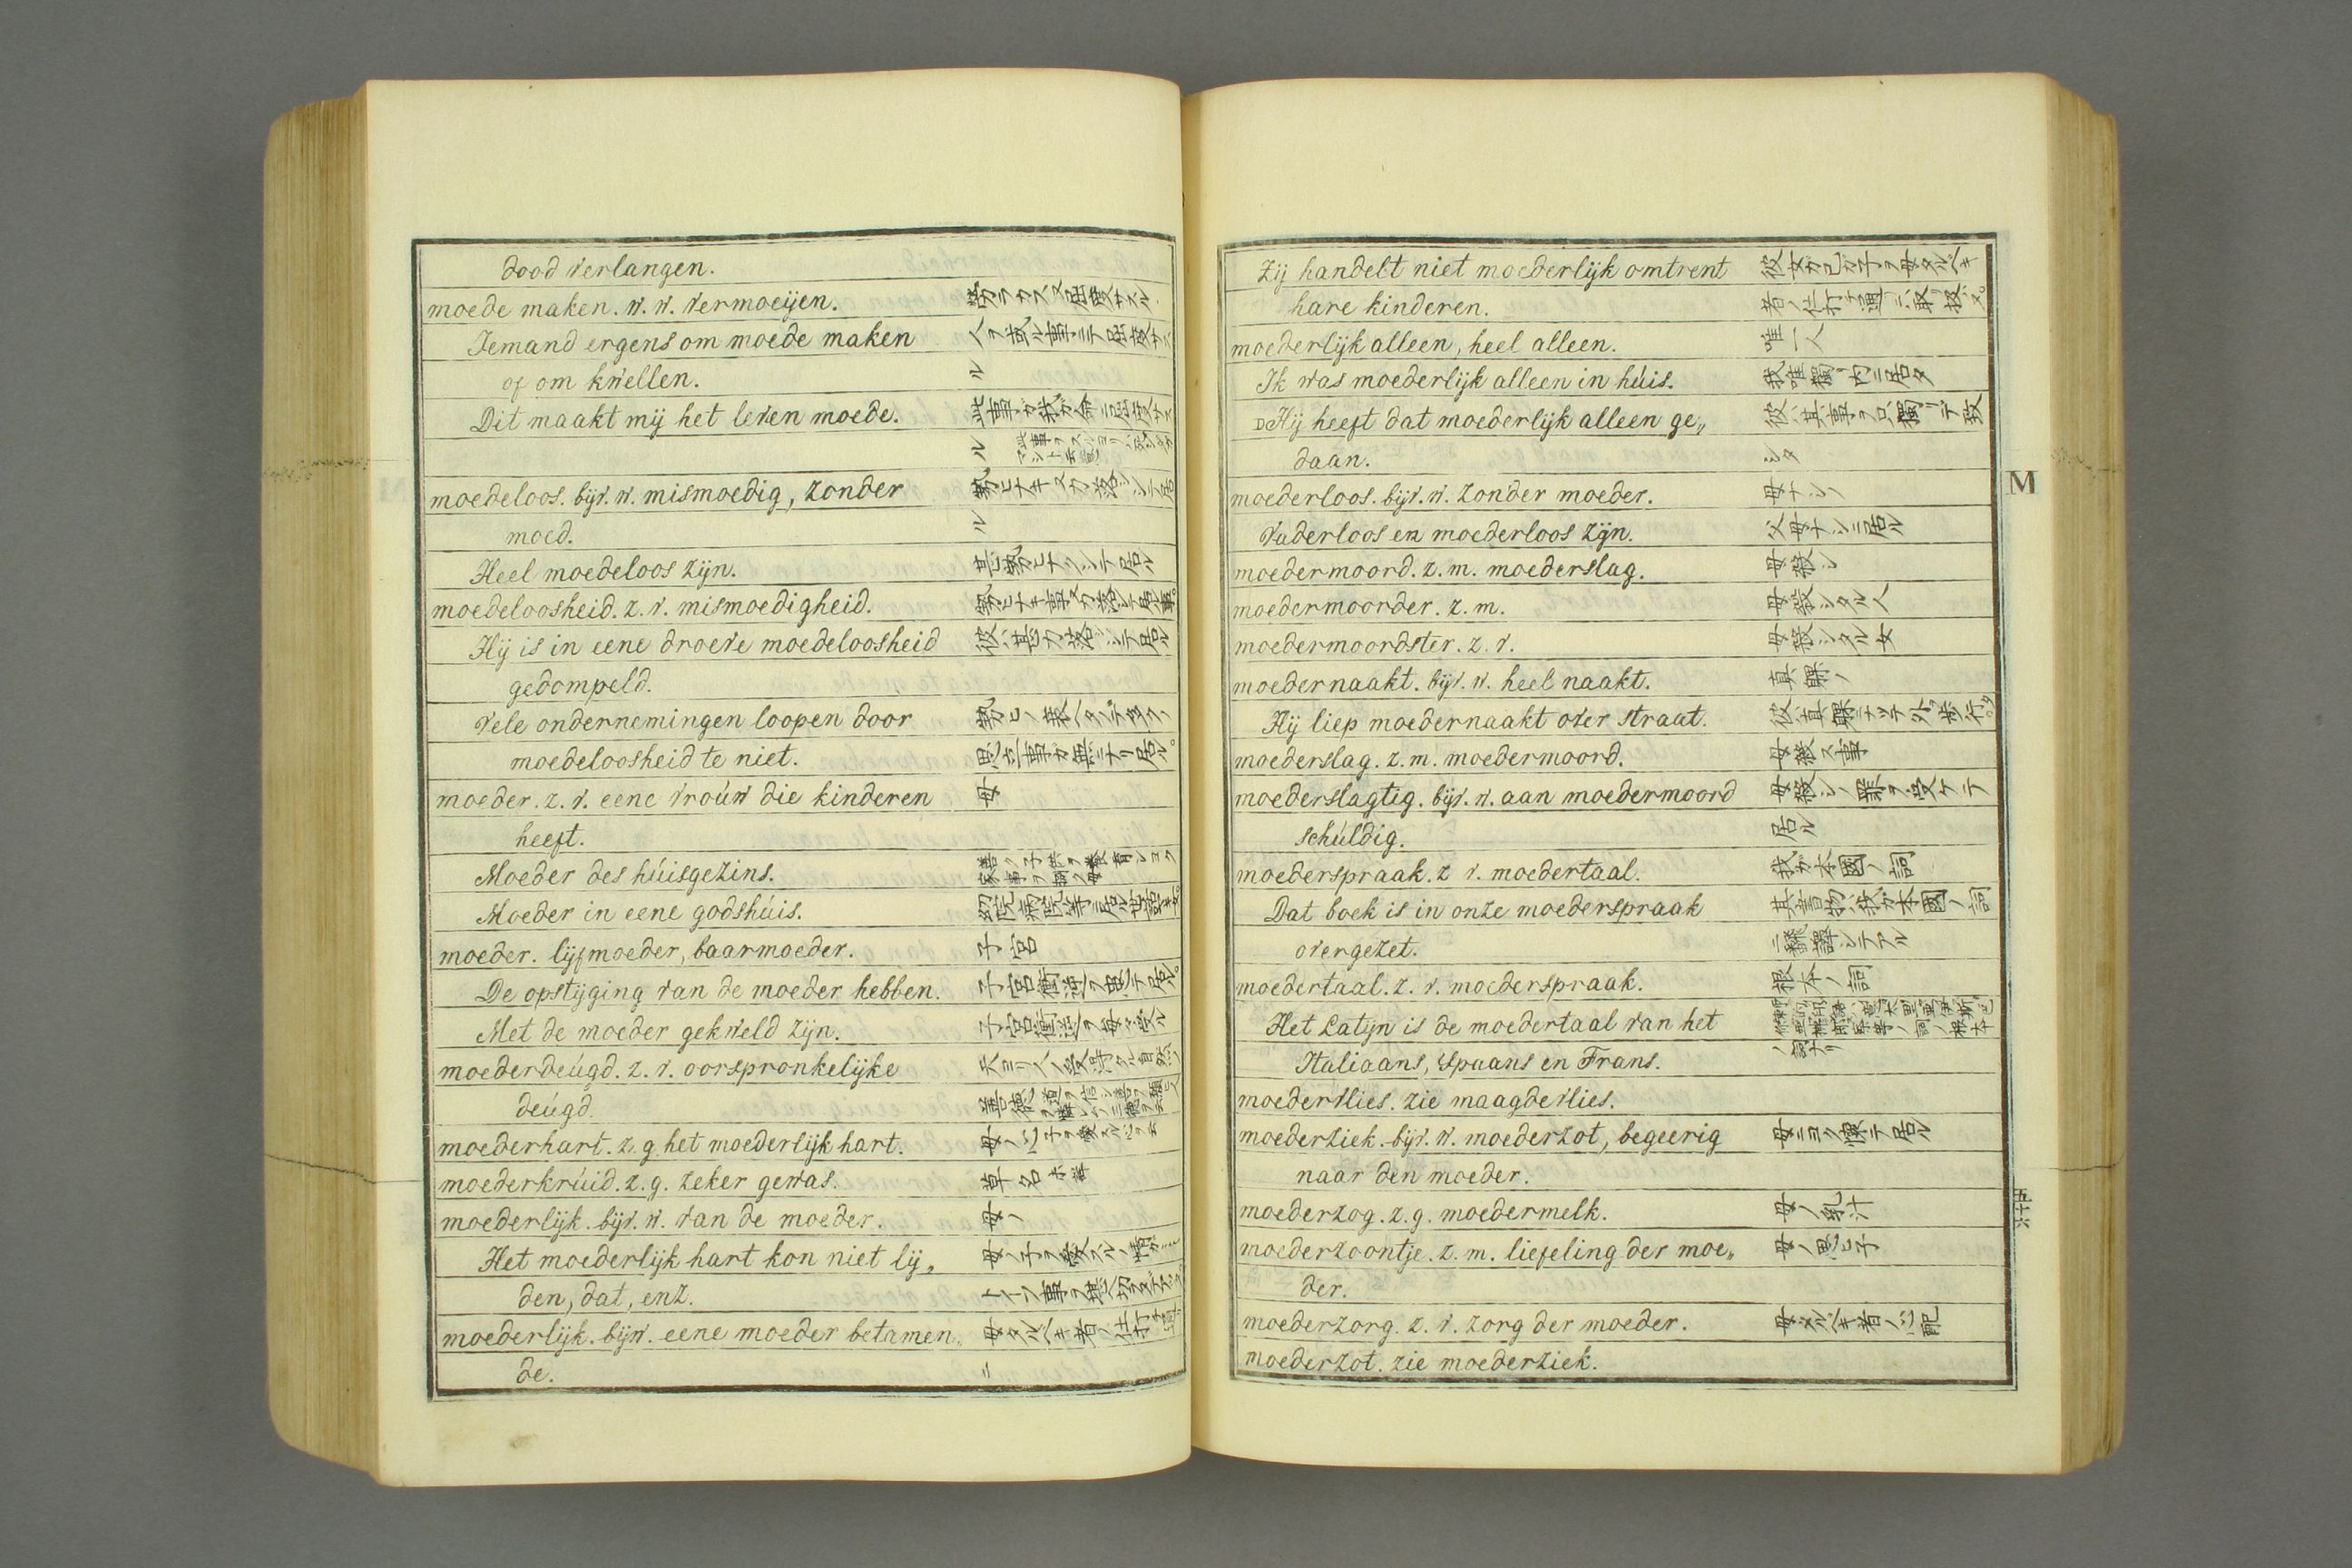 dood verlangen.
moede maken. w. w. vermoeijen. 勞ラカス又屈度サスル
Iemand ergens om moede maken 人ヲ或ル事ニテ屈度サス
of om kwellen. ル
Dit maakt mij het leven moede. 此事ガ我ガ命ニ屈度サス
ル
moedeloos. bijv. w. mismoedig, zonder 勢ヒナキ又力落シテ居
moed. ル
Heel moedeloos zijn. 甚勢ヒナクシテ居ル
moedeloosheid. z. v. mismoedigheid. 勢ヒナキ事又力落シテ居ル事。
Hij is in eene droeve moedeloosheid 彼ハ甚力落シテ居ル
gedompeld.
Vele ondernemingen loopen door
moedeloosheid te niet. 思立事ガ無ニナリ居ル。
moeder. z. v. eene vroúw die kinderen 母
heeft.
Moeder des húisgezins.
Moeder in eene godshúis.
moeder. lijfmoeder, baarmoeder. 子宮
De opstijging van de moeder hebben. 子宮衝逆ヲ患テ居ル。
Met de moeder gekweld zijn.
moederdeúgd. z. v. oorspronkelijke
deúgd.
moederhart. z. g. het moederlijk hart. 母ノ心
moederkrúid. z. g. zeker gewas. 草名
moederlijk. bijv. w. van de moeder. 母ノ
Het moederlijk hart kon niet lij„
den, dat, enz.
moederlijk. bijw. eene moeder betamen„ 母タルベキ者ノ仕打ノ通リ
de. ニ
Zij handelt niet moederlijk omtrent 彼女ガ己ガ子ヲ母タルベキ
hare kinderen. 者ノ仕打ノ通リニ取リ扱ヌ。
moederlijk alleen, heel alleen. 唯一人
Ik was moederlijk alleen in húis. 我唯獨リ内ニ居タ
Hij heeft dat moederlijk alleen ge„ 彼ハ其事ヲ只獨リデ致
daan. シタ
moederloos. bijv. w. zonder moeder. 母ナシノ
Vaderloos en moederloos zijn. 父母ナシニ居ル
moedermoord. z. m. moederslag. 母殺シ
moedermoorder. z. m. 母殺シタル人
moedermoordster. z. v. 母殺シタル女
moedernaakt. bijv. w. heel naakt. 真躶ノ
Hij liep moedernaakt over straat.
moederslag. z. m. moedermoord. 母殺ス事
moederslagtig. bijv. w. aan moedermoord 母殺シノ罪ヲ受ケテ
schúldig. 居ル
moederspraak. z v. moedertaal. 我ガ本國ノ詞
Dat boek is in onze moederspraak 其書物ハ我ガ本國ノ詞
overgezet. ニ飜譯シテアル
moedertaal. z. v. moederspraak. 根本ノ詞
Het Latijn is de moedertaal van het
Italiaans, Spaans en Frans.
moedervlies. zie maagdevlies.
moederziek. bijv. w. moederzot, begeerig 母ニヨク懐テ居ル
naar den moeder.
moederzog. z. g. moedermelk. 母ノ乳汁
moederzoontje. z. m. liefeling der moe„ 母ノ思ヒ子
der.
moederzorg. z. v. zorg der moeder. 母タルベキ者ノ心配
moederzot. zie moederziek.
M
五十六